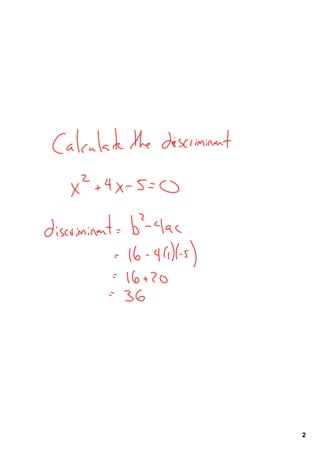 Calculate the discriminent
x² + 4x - 5 = 0
discriminent = b² - 4ac
= 16 - 4(1)(-5)
= 16 + 20
= 36
2